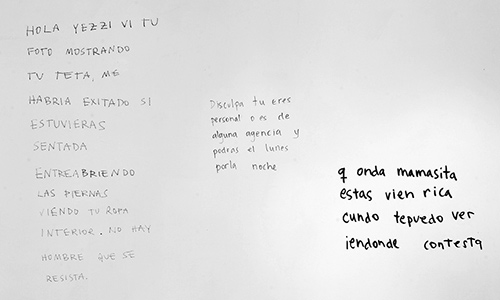 HOLA YEZZI VI TU
FOTO MOSTRANDO
TU TETA, ME
HABRIA EXITADO SI
ESTUVIERAS
SENTADA
ENTREABRIENDO
LAS PIERNAS
VIENDO TU ROPA
INTERIOR. NO HAY
HOMBRE QUE SE
RESISTA.
Disculpa tu eres
personal o es de
alguna agencia y
podras el lunes
porla noche
q onda mamasita
estas vien rica
cundo tepuedo ver
iendonde contesta